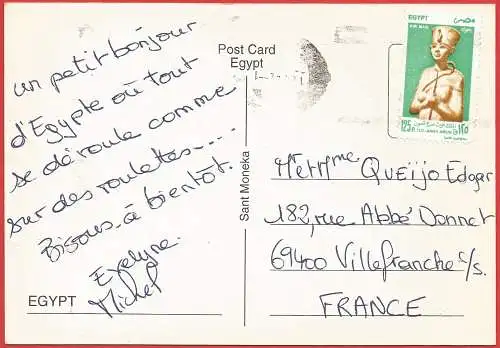 un petit bonjour
d'Egypte où tout
se déroule comme
sur des roulettes.....
Bisous. à bientôt.
Evelyne.
Michel
EGYPT
Post Card
Egypt
Sant Moneka
EGYPT مصر
AIR MAIL
125 P. ١٢٥
Mr et Mme QUEÏJO Edgar
182, rue Abbé Donnet
69400 Villefranche s/s.
FRANCE